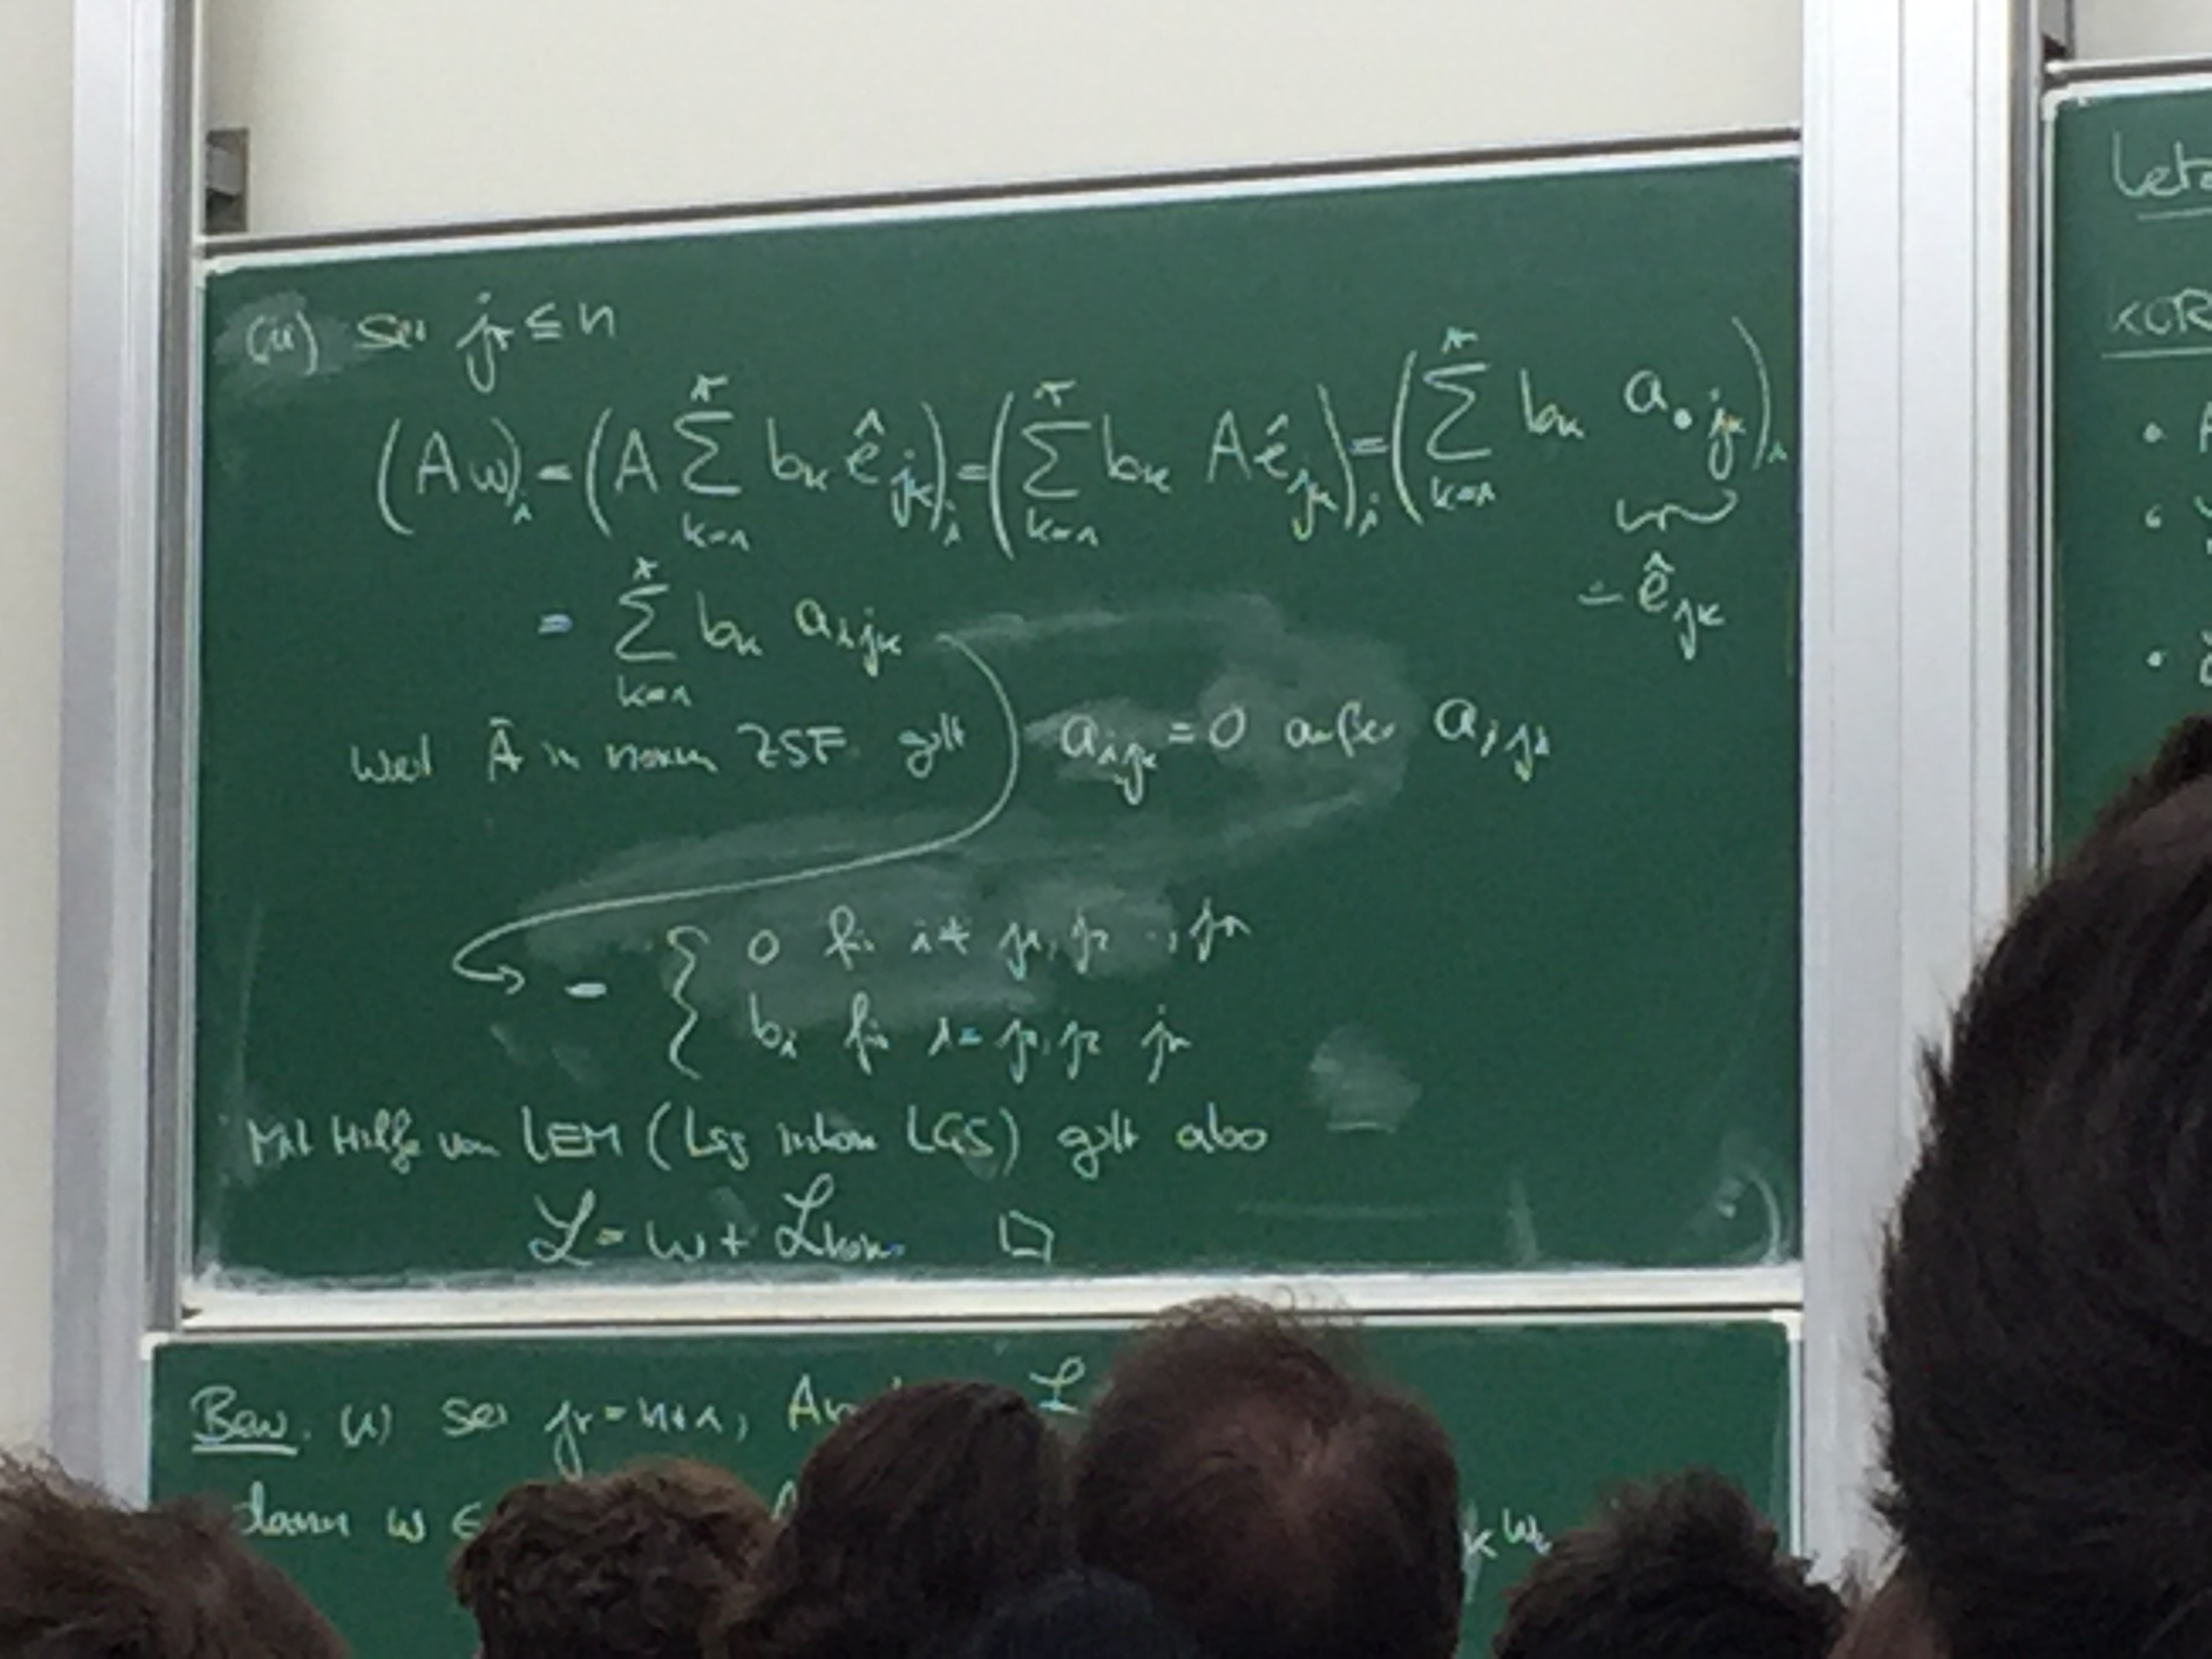 (ii) sei j_r ≤ n
(Aw)_i = (A ∑_{k=1}^{r} b_k ê_{j_k})_i = (∑_{k=1}^{r} b_k A ê_{j_k})_i = (∑_{k=1}^{r} b_k a_{•j_k})_i
= ê_{j_k}
= ∑_{k=1}^{r} b_k a_{i j_k}
weil Ā in norm ZSF gilt a_{i j_k} = 0 außer a_{i j_i}
= { 0 für i ≠ j_1, j_2 .., j_r
b_i für i = j_1, j_2 j_r
Mit Hilfe von LEM (Lsg inhom LGS) gilt also
ℒ = w + ℒ_hom □
Bew. (i) sei j_r = n+1, ℒ
dann w ∈ w_k
Letz
KOR